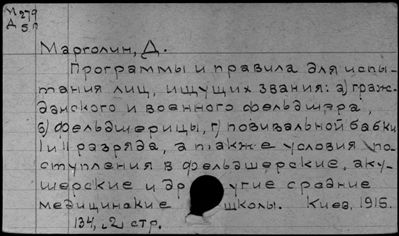 М279
Д 5 п
Марголин, Д.
Программы и правила для испы-
тания лиц, ищущих звания: а) граж-
данского и военного фельдшера,
в) фельдшерицы, г) повивальной бабки
I и II разряда, а также условия по-
ступления в фельдшерские, аку-
шерские и другие средние
медицинские школы. Киев, 1915.
134, 2 стр.